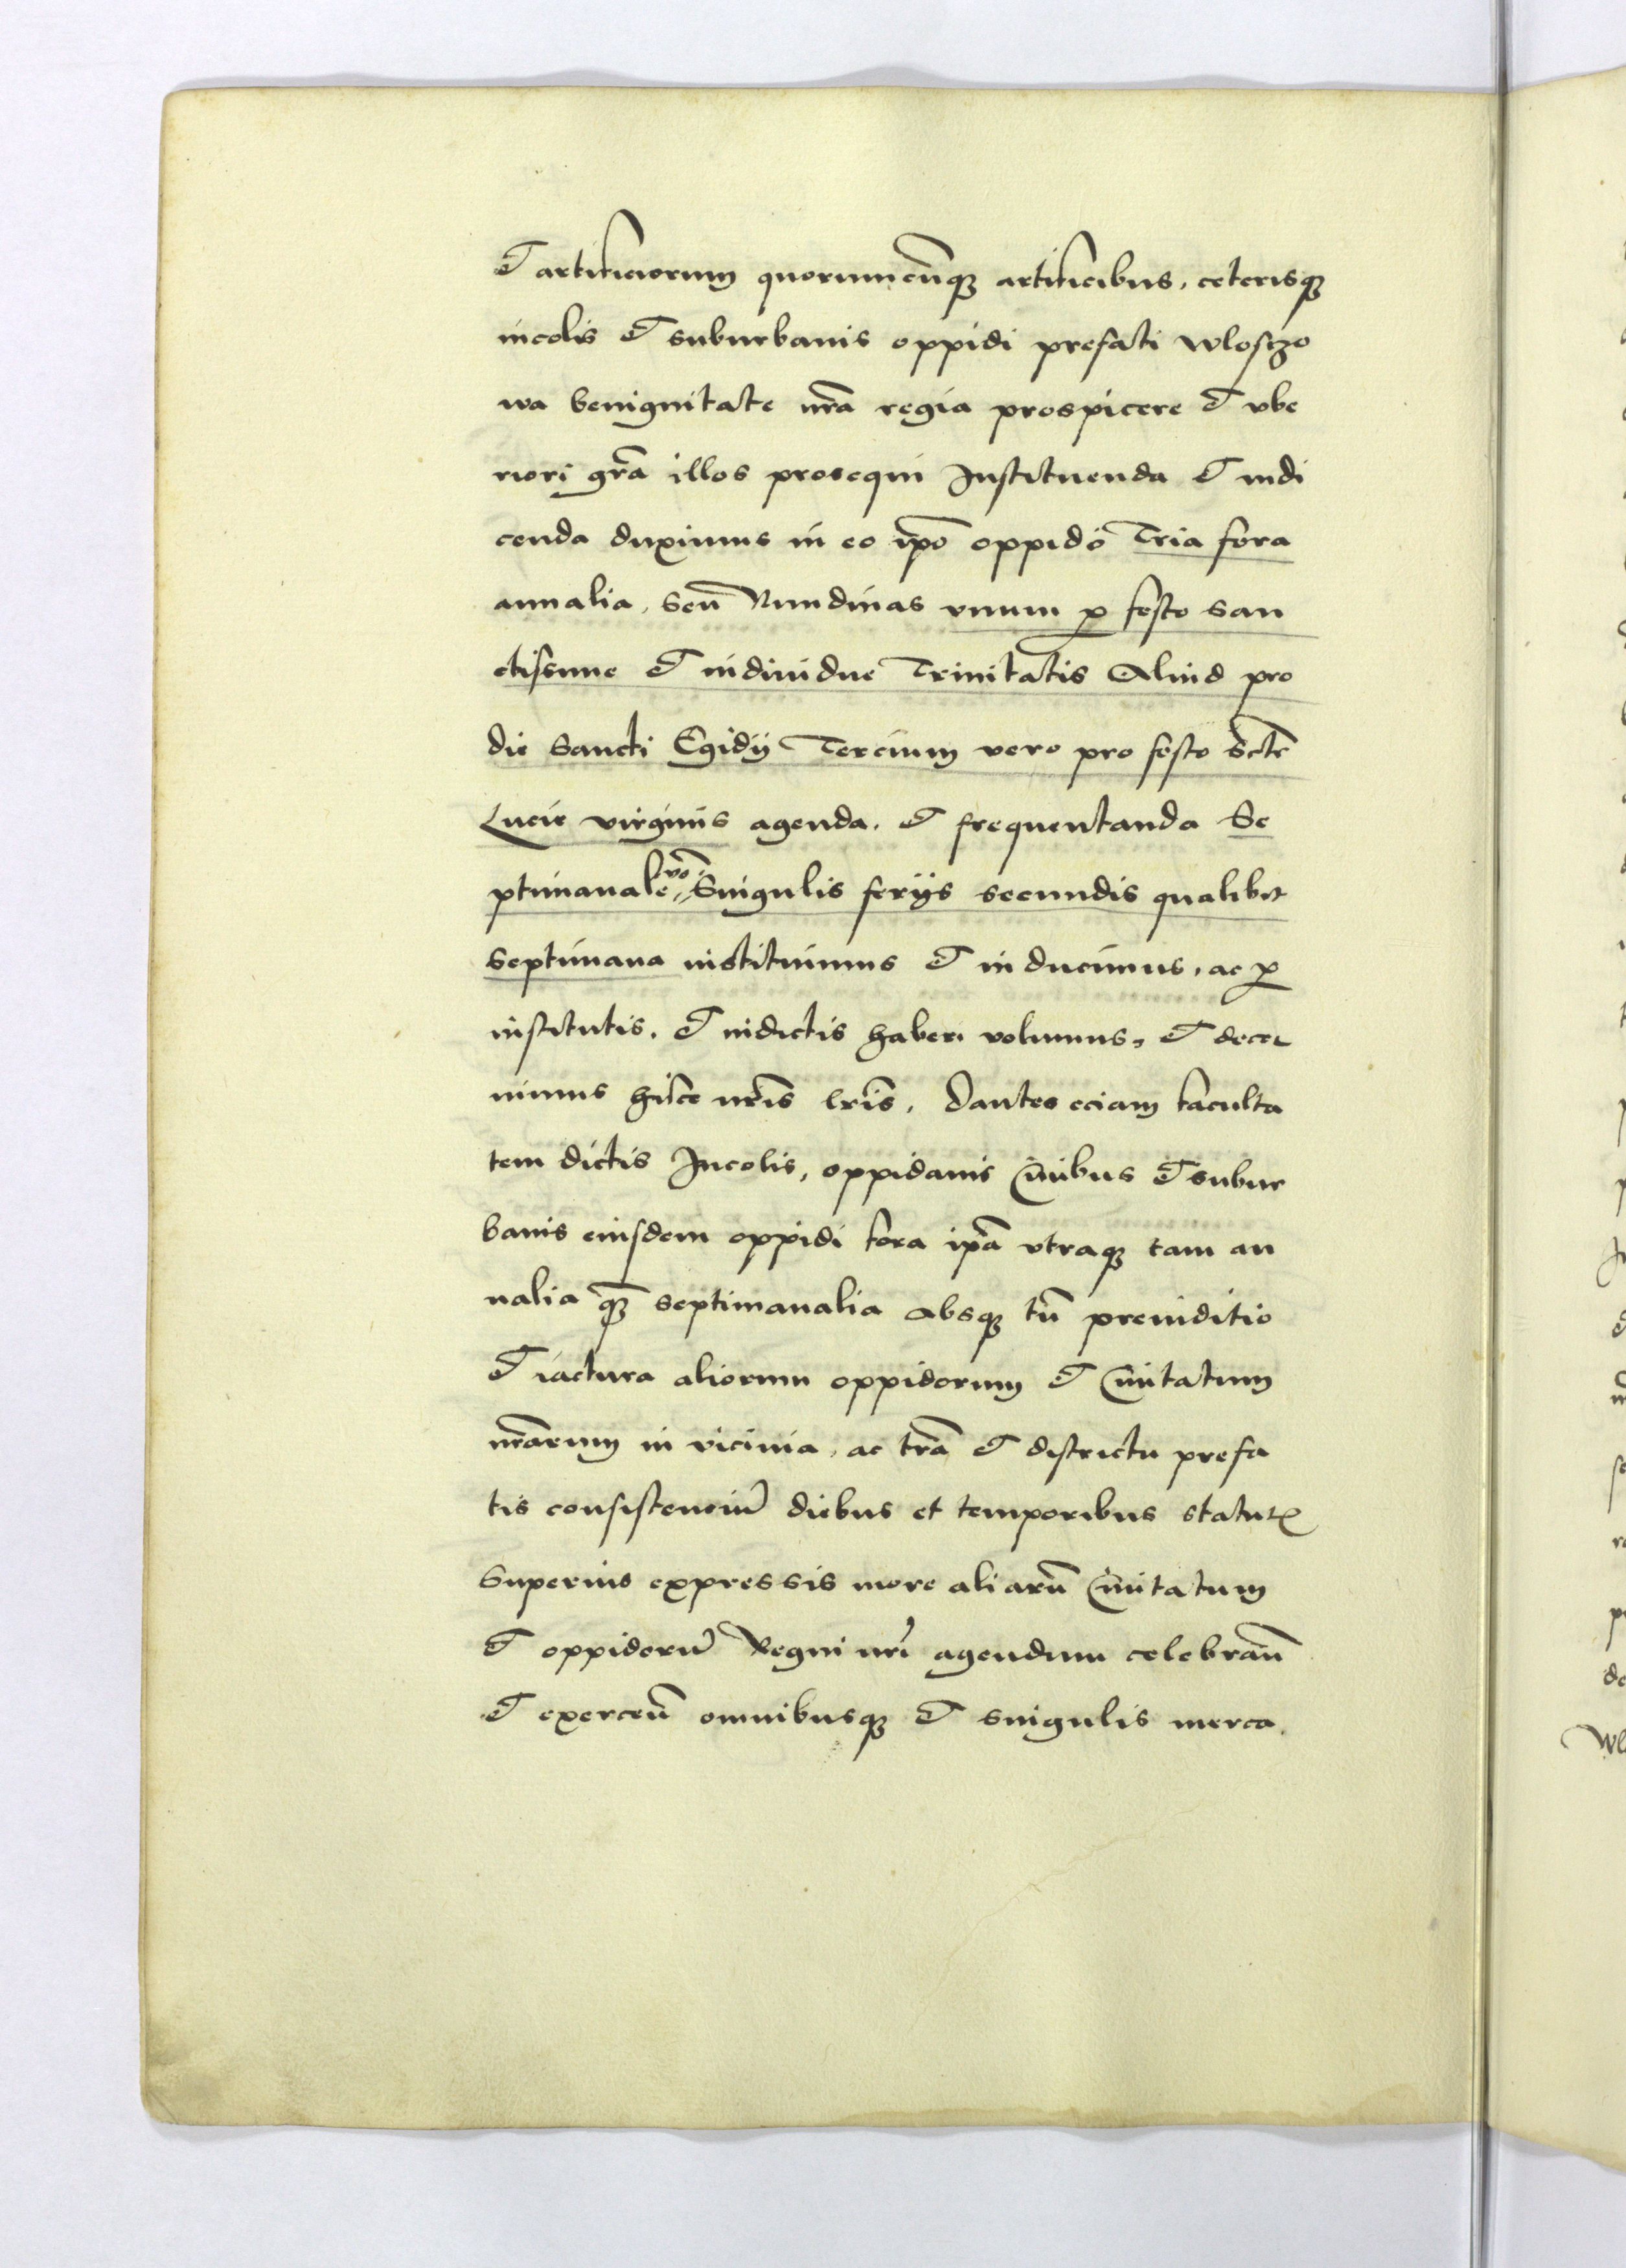 et artificiorum quorumcūq₃ artificibus, ceterisq₃
incolis et suburbanis oppidi prefati Wlosczo
wa benignitate nr̄a regia prospicere et vbe
riori gr̄a illos prosequi Instituenda et indi
cenda duximus in eo ip̄o oppido Tria fora
annalia, Seu Nundinas vnum ꝑ festo San
ctissime et indiuidue Trinitatis Aliud pro
die Sancti Egidij Tercium vero pro festo Sctē
Lucie virginis agenda. et frequentanda Se
ptimanale vō Singulis ferijs secundis qualibet
Septimana instituimus et inducimus, ac ꝑ
institutis. et indictis haberi volumus, et decer
nimus hisce nr̄is lr̄is. Dantes eciam faculta
tem dictis Incolis, oppidanis Ciuibus et subur
banis eiusdem oppidi fora ip̄a vtraq₃ tam an
nalia q̄₃ septimanalia absq₃ tn̄ preiuditio
et iactura aliorum oppidorum et Ciuitatum
nr̄arum in vicinia, ac tr̄a et districtu prefa
tis consistenciū diebus et temporibus statutis
Superius expressis more aliarū Ciuitatum
et oppidorū Regni nr̄i agendum celebran̄
et exercen̄ omnibusq₃ et singulis merca.